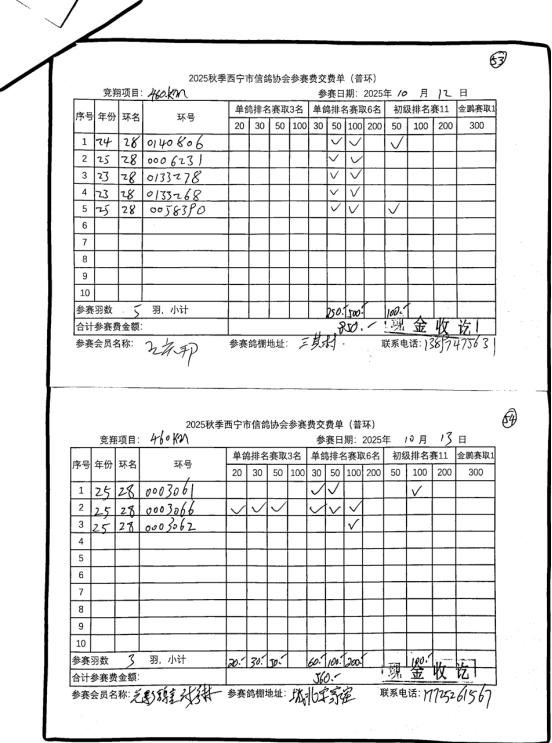 53
2025秋季西宁市信鸽协会参赛费交费单（普环）
竞翔项目: 460KM 参赛日期: 2025年 10 月 12 日
序号 年份 环名 环号 单鸽排名赛取3名 单鸽排名赛取6名 初级排名赛11 金鹏赛取1
20 30 50 100 30 50 100 200 50 100 200 300
1 24 28 0140806 ✓ ✓ ✓
2 25 28 0006231 ✓ ✓
3 23 28 0133278 ✓ ✓
4 23 28 0133268 ✓ ✓
5 25 28 0058390 ✓ ✓ ✓
6
7
8
9
10
参赛羽数 5 羽, 小计 250.- 500.- 100.-
合计参赛费金额: 850.- 现金收讫
参赛会员名称: 参赛鸽棚地址: 三其村. 联系电话:
54
2025秋季西宁市信鸽协会参赛费交费单（普环）
竞翔项目: 460KM 参赛日期: 2025年 10 月 13 日
序号 年份 环名 环号 单鸽排名赛取3名 单鸽排名赛取6名 初级排名赛11 金鹏赛取1
20 30 50 100 30 50 100 200 50 100 200 300
1 25 28 0003061 ✓ ✓ ✓
2 25 28 0003066 ✓ ✓ ✓ ✓ ✓ ✓
3 25 28 0003062 ✓
4
5
6
7
8
9
10
参赛羽数 3 羽, 小计 20.- 30.- 50.- 60.- 100.- 200.- 100.-
合计参赛费金额: 560.- 现金收讫
参赛会员名称: 参赛鸽棚地址: 城北 联系电话: 17725261567